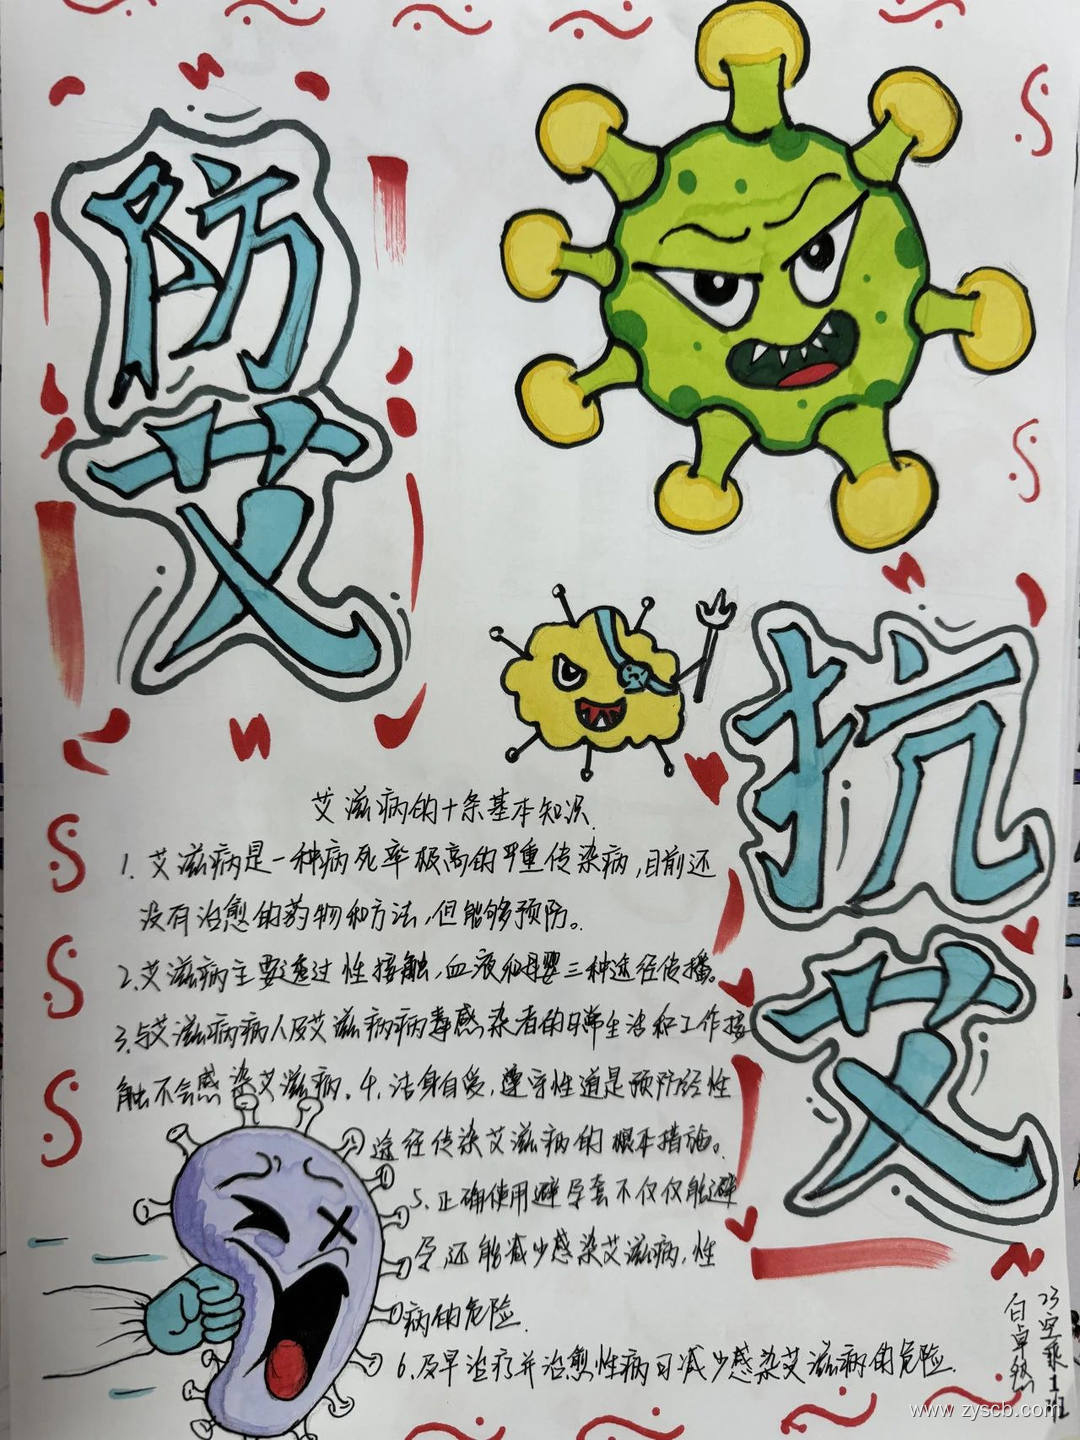 防
艾
抗
艾
艾滋病的十条基本知识
1. 艾滋病是一种病死率极高的严重传染病,目前还
没有治愈的药物和方法,但能够预防。
2.艾滋病主要透过性接触,血液和母婴三种途径传播。
3.与艾滋病病人及艾滋病病毒感染者的日常生活和工作接
触不会感染艾滋病. 4.洁身自爱,遵守性道是预防经性
途径传染艾滋病的根本措施。
5.正确使用避孕套不仅仅能避
令,还能减少感染艾滋病,性
病的危险.
6.及早治疗并治愈性病可减少感染艾滋病的危险.
23空乘1班
白卓
www.zyscb.com